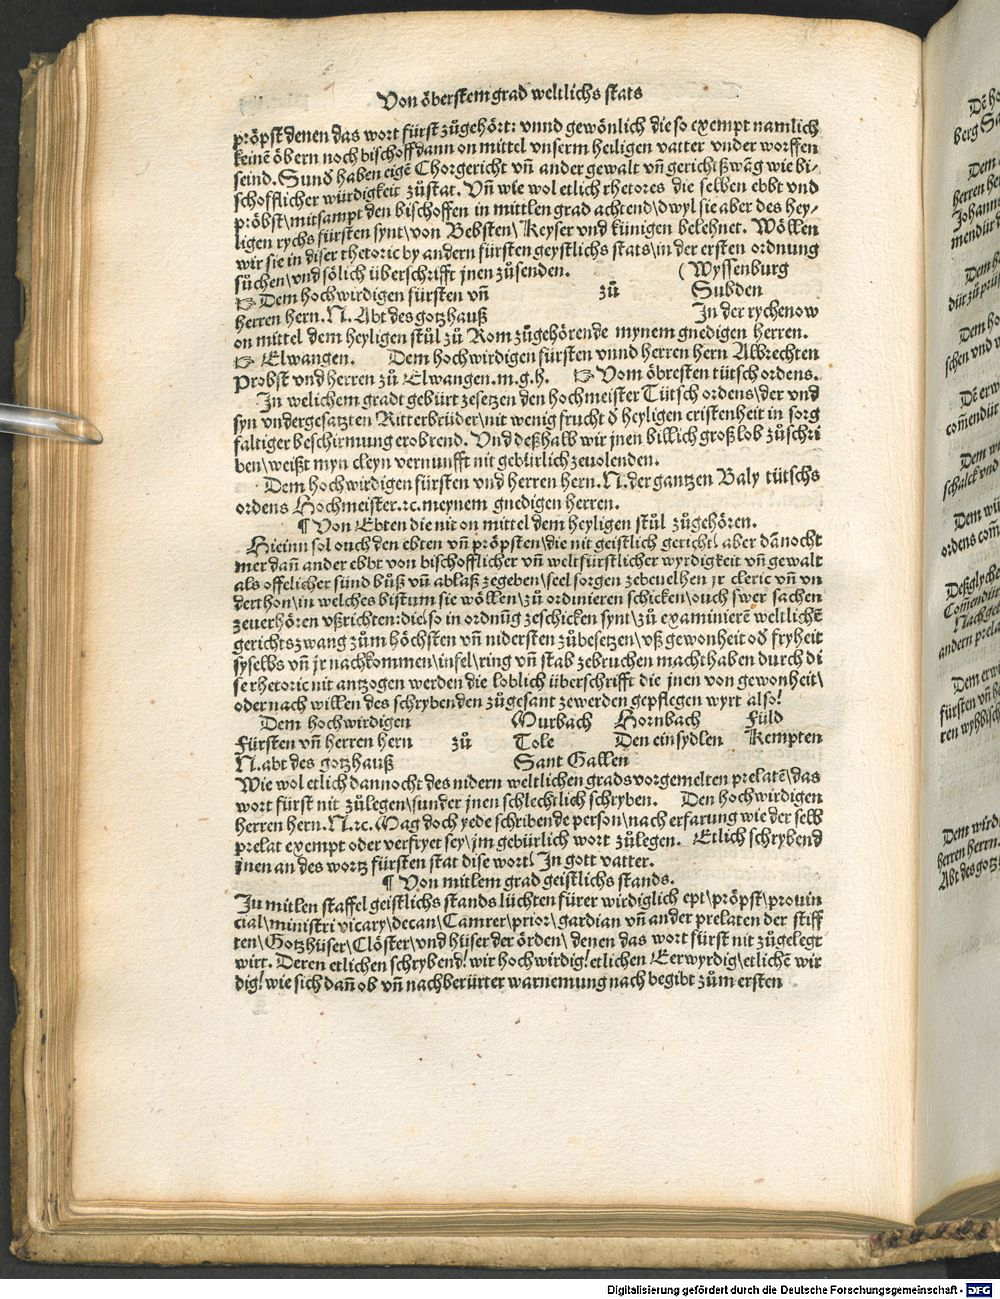 Von öberstem grad weltlichs stats
pröpst denen das wort fürst zůgehört: vnnd gewönlich die so exempt namlich
keinē öbern noch bischoff dann on mittel vnserm heiligen vatter vnder worffen
seind. Sund haben eigē Chorgericht vñ ander gewalt vñ gerichtßwāg wie bi⸗
schofflicher würdigkeit zůstat. Vñ wie wol etlich rhetores die selben ebbt vnd
pröbst\mitsampt den bischoffen in mittlen grad achtend\dwyl sie aber des hey⸗
ligen rychs fürsten synt\von Bebsten\Keyser vnd künigen belehnet. Wöllen
wir sie in diser rhetoric by andern fürsten geystlichs stats\in der ersten ordnung
sůchen\vnd sölich überschrifft jnen zůsenden. ( Wyssenburg
☞ Dem hochwirdigen fürsten vñ zů Subden
herren hern. N. Abt des gotzhauß In der rychenow
on mittel dem heyligen stůl zů Rom zůgehörende mynem gnedigen herren.
☞ Elwangen. Dem hochwirdigen fürsten vnnd herren hern Albrechten
Probst vnd herren zů Elwangen.m.g.h. ☞ Vom öbresten tütsch ordens.
In welichem gradt gebürt zesetzen den hochmeister Tütsch ordens\der vnd
syn vndergesatzten Ritterbrüder\nit wenig frucht d̕ heyligen cristenheit in sorg
faltiger beschirmung erobrend. Vnd deßhalb wir jnen billich groß lob zůschri
ben\weißt myn cleyn vernunfft nit gebürlich zeuolenden.
Dem hochwirdigen fürsten vnd herren hern. N. der gantzen Baly tütschs
ordens Hochmeister.ꝛc. meynem gnedigen herren.
¶ Von Ebten die nit on mittel dem heyligen stůl zůgehören.
Hieinn sol ouch den ebten vñ pröpsten\die nit geistlich gericht\ aber dānocht
mer dañ ander ebbt von bischofflicher vñ weltfürstlicher wyrdigkeit vñ gewalt
als offelicher sünd bůß vñ ablaß zegeben\seel sorgen zebeuelhen jr cleric vñ vn
derthon\in welches bistum sie wöllen\zů ordinieren schicken\ouch swer sachen
zeuerhören vßrichten: die so in ordnūg zeschicken synt\zů examinierē weltlichē
gerichtszwang zům höchsten vñ nidersten zůbesetzen\vß gewonheit od̕ fryheit
syselbs vñ jr nachkommen\infel\ring vñ stab zebruchen macht haben durch di
se rhetoric nit antzogen werden die loblich überschrifft die jnen von gewonheit\
oder nach willen des schrybenden zůgesant zewerden gepflegen wyrt also!
Dem hochwirdigen Murbach Hornbach Füld
Fürsten vñ herren hern zů Tole Den einsydlen Kempten
N. abt des gotzhauß Sant Gallen
Wie wol etlich dannocht des nidern weltlichen grads vorgemelten prelatē\das
wort fürst nit zůlegen\sunder jnen schlechtlich schryben. Den hochwirdigen
herren hern. N. ꝛc. Mag doch yede schribende person\nach erfarung wie der selb
prelat exempt oder verfryet sey\jm gebürlich wort zůlegen. Etlich schrybend
jnen an des wortz fürsten stat dise wort! In gott vatter.
¶ Von mitlem grad geistlichs stands.
In mitlen staffel geistlichs stands lüchten fürer wirdiglich ept\pröpst\prouin
cial\ministri vicary\decan\Camrer\prior\gardian vñ ander prelaten der stiff
ten\Gotzhüser\Clöster\vnd hüser der örden\ denen das wort fürst nit zůgelegt
wirt. Deren etlichen schrybend! wir hochwirdig! etlichen Eerwyrdig\etlichē wir
dig! wie sich dañ ob vñ nachberürter warnemung nach begibt zům ersten
Digitalisierung gefördert durch die Deutsche Forschungsgemeinschaft - DFG